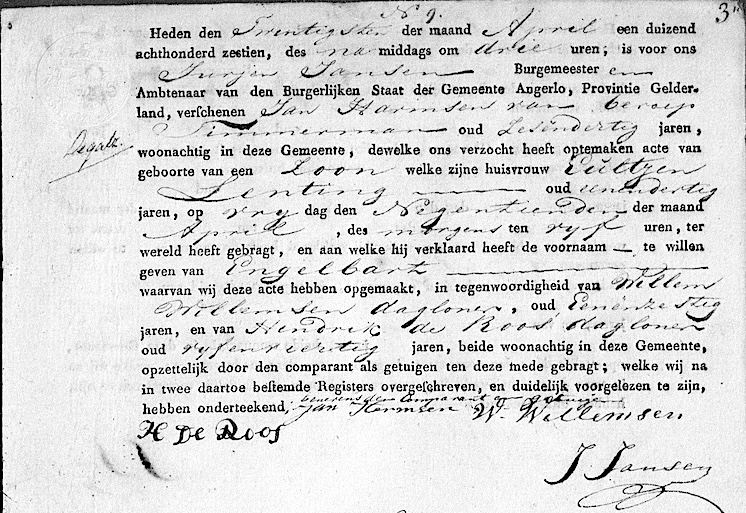 N 9.
3
Heden den Twentigsten der maand April een duizend
achthonderd zestien, des na middags om drie uren; is voor ons
Jurjen Jansen Burgemeester en
Ambtenaar van den Burgerlijken Staat der Gemeente Angerlo, Provintie Gelder-
land, verschenen Jan Harmsen van beroep
Timmerman oud Sesendertig jaren,
woonachtig in deze Gemeente, dewelke ons verzocht heeft optemaken acte van
geboorte van een Zoon welke zijne huisvrouw
Lenting oud eenendertig
jaren, op vry dag den Negentienden der maand
April, des morgens ten vyf uren, ter
wereld heeft gebragt, en aan welke hij verklaard heeft de voornaam — te willen
geven van Engelbart
waarvan wij deze acte hebben opgemaakt, in tegenwoordigheid van Willem
Willemsen dagloner, oud Eenenzestig
jaren, en van Hendrik de Roos dagloner
oud vyfenveertig jaren, beide woonachtig in deze Gemeente,
opzettelijk door den comparant als getuigen ten deze mede gebragt; welke wij na
in twee daartoe bestemde Registers overgeschreven, en duidelijk voorgelezen te zijn,
hebben onderteekend, benevens den Comparant en getuigen
Jan Hermsen W. Willemsen
H De Roos
J Jansen